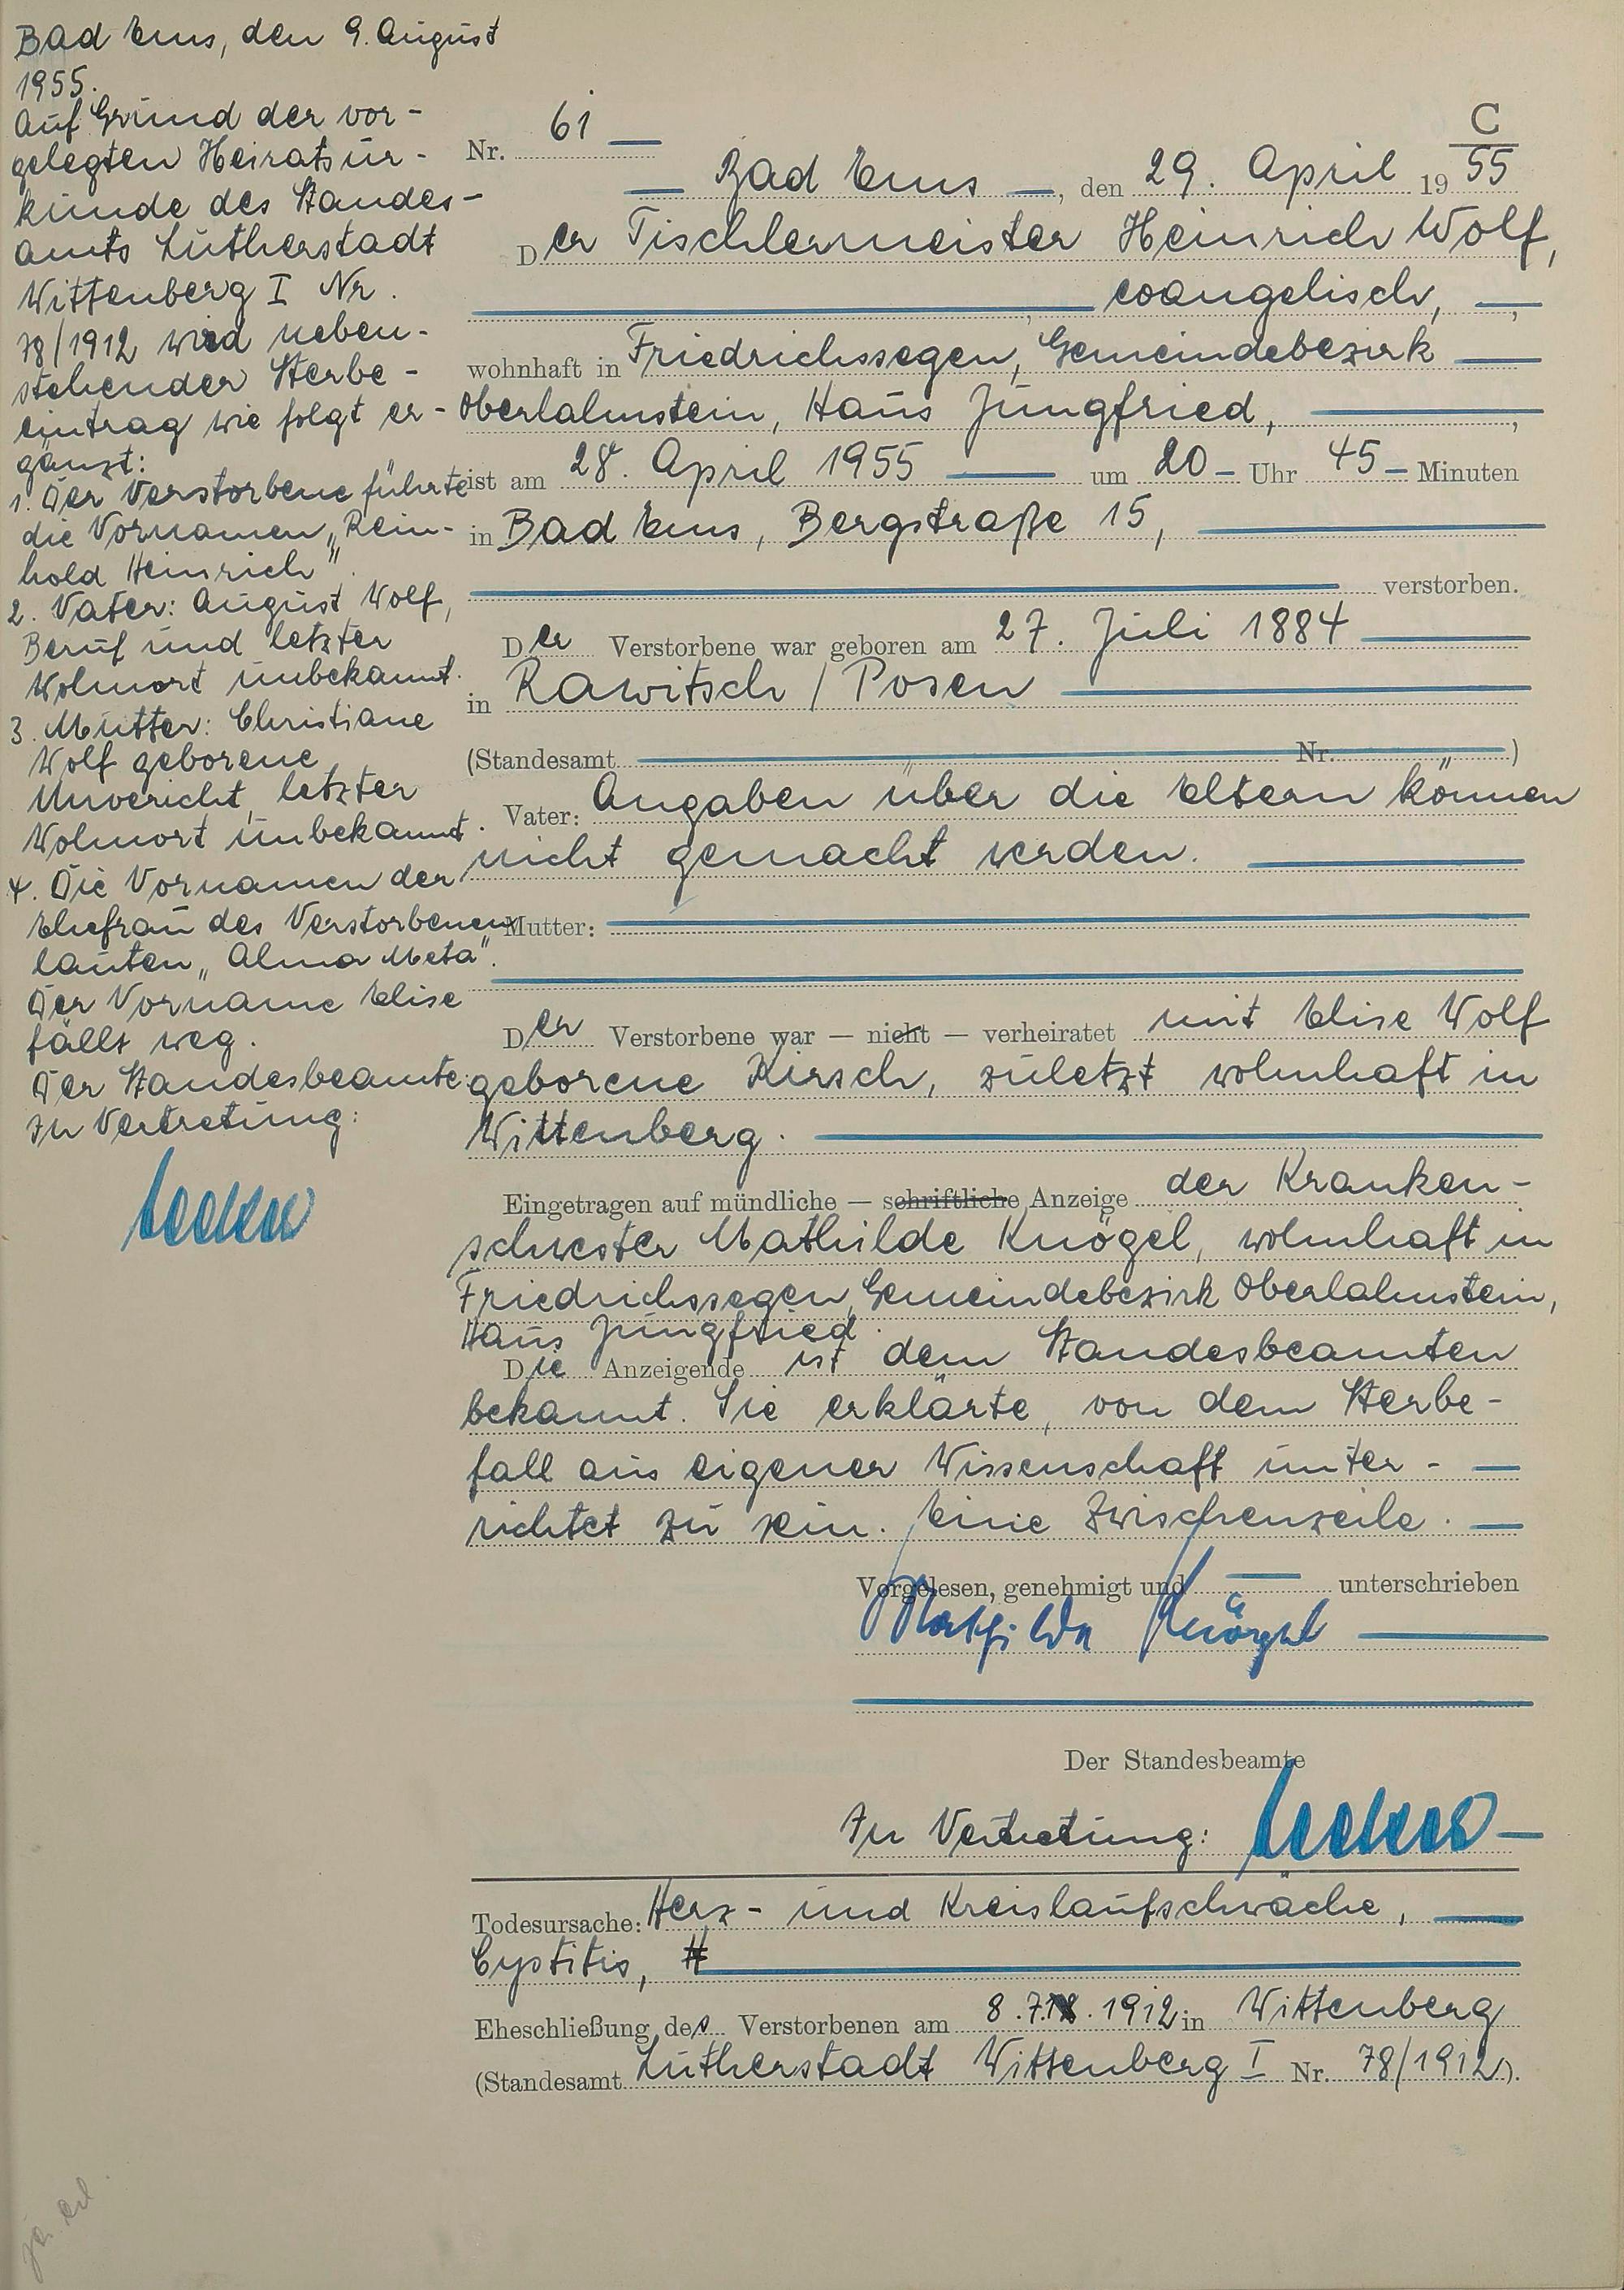 Bad Ems, den 9. August
1955.
Auf Grund der vor-
gelegten Heiratsur-
kunde des Standes-
amts Lutherstadt
Wittenberg I Nr.
78/1912 wird neben-
stehender Sterbe-
eintrag wie folgt er-
gänzt:
1. Der Verstorbene führte
die Vornamen „Rein-
hold Heinrich".
2. Vater: August Wolf,
Beruf und letzter
Wohnort unbekannt.
3. Mutter: Christiane
Wolf geborene
Unvericht, letzter
Wohnort unbekannt.
4. Die Vornamen der
Ehefrau des Verstorbenen
lauten „Alma Meta".
Der Vorname Elise
fällt weg.
Der Standesbeamte
In Vertretung:
C
Nr. 61
Bad Ems, den 29. April 1955
Der Tischlermeister Heinrich Wolf,
evangelisch,
wohnhaft in Friedrichssegen, Gemeindebezirk
Oberlahnstein, Haus Jungfried,
ist am 28. April 1955 um 20 Uhr 45 Minuten
in Bad Ems, Bergstraße 15,
verstorben.
Der Verstorbene war geboren am 27. Juli 1884
in Rawitsch / Posen
(Standesamt Nr. )
Vater: Angaben über die Eltern können
nicht gemacht werden.
Mutter:
Der Verstorbene war — nicht — verheiratet mit Elise Wolf
geborene Kirsch, zuletzt wohnhaft in
Wittenberg.
Eingetragen auf mündliche — schriftliche Anzeige der Kranken-
schwester Mathilde Knögel, wohnhaft in
Friedrichssegen, Gemeindebezirk Oberlahnstein,
Haus Jungfried.
Die Anzeigende ist dem Standesbeamten
bekannt. Sie erklärte, von dem Sterbe-
fall aus eigener Wissenschaft unter-
richtet zu sein. Eine Zwischenzeile.
Vorgelesen, genehmigt und unterschrieben
Mathilde Knögel
Der Standesbeamte
In Vertretung:
Todesursache: Herz- und Kreislaufschwäche,
Cystitis,
Eheschließung des Verstorbenen am 8.7.1912 in Wittenberg
(Standesamt Lutherstadt Wittenberg I Nr. 78/1912).